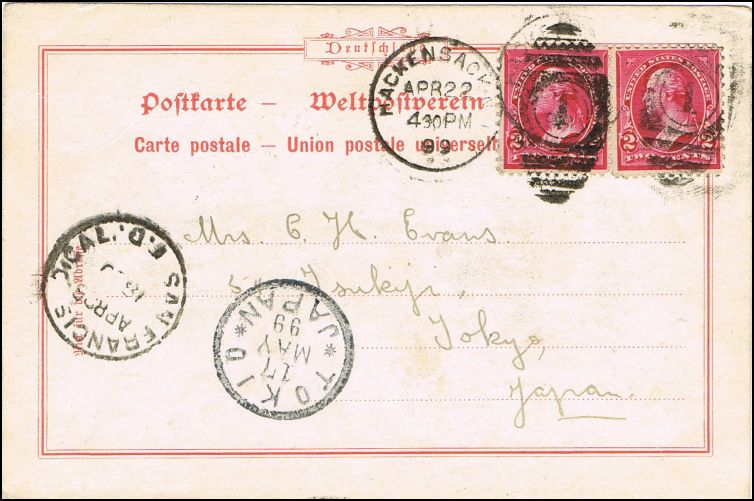 Deutschl
Postkarte – Weltpostverein
Carte postale – Union postale universelle
HACKENSACK
APR 22
4-30PM
99
UNITED STATES POSTAGE
2 TWO CENTS 2
UNITED STATES POSTAGE
2 TWO CENTS
Mrs. C. H. Evans
5 Tsukiji,
Tokyo,
Japan.
Nur für die Adresse
SAN FRANCISCO, CAL. F.D.
APR
TOKIO JAPAN
17
MAY
99